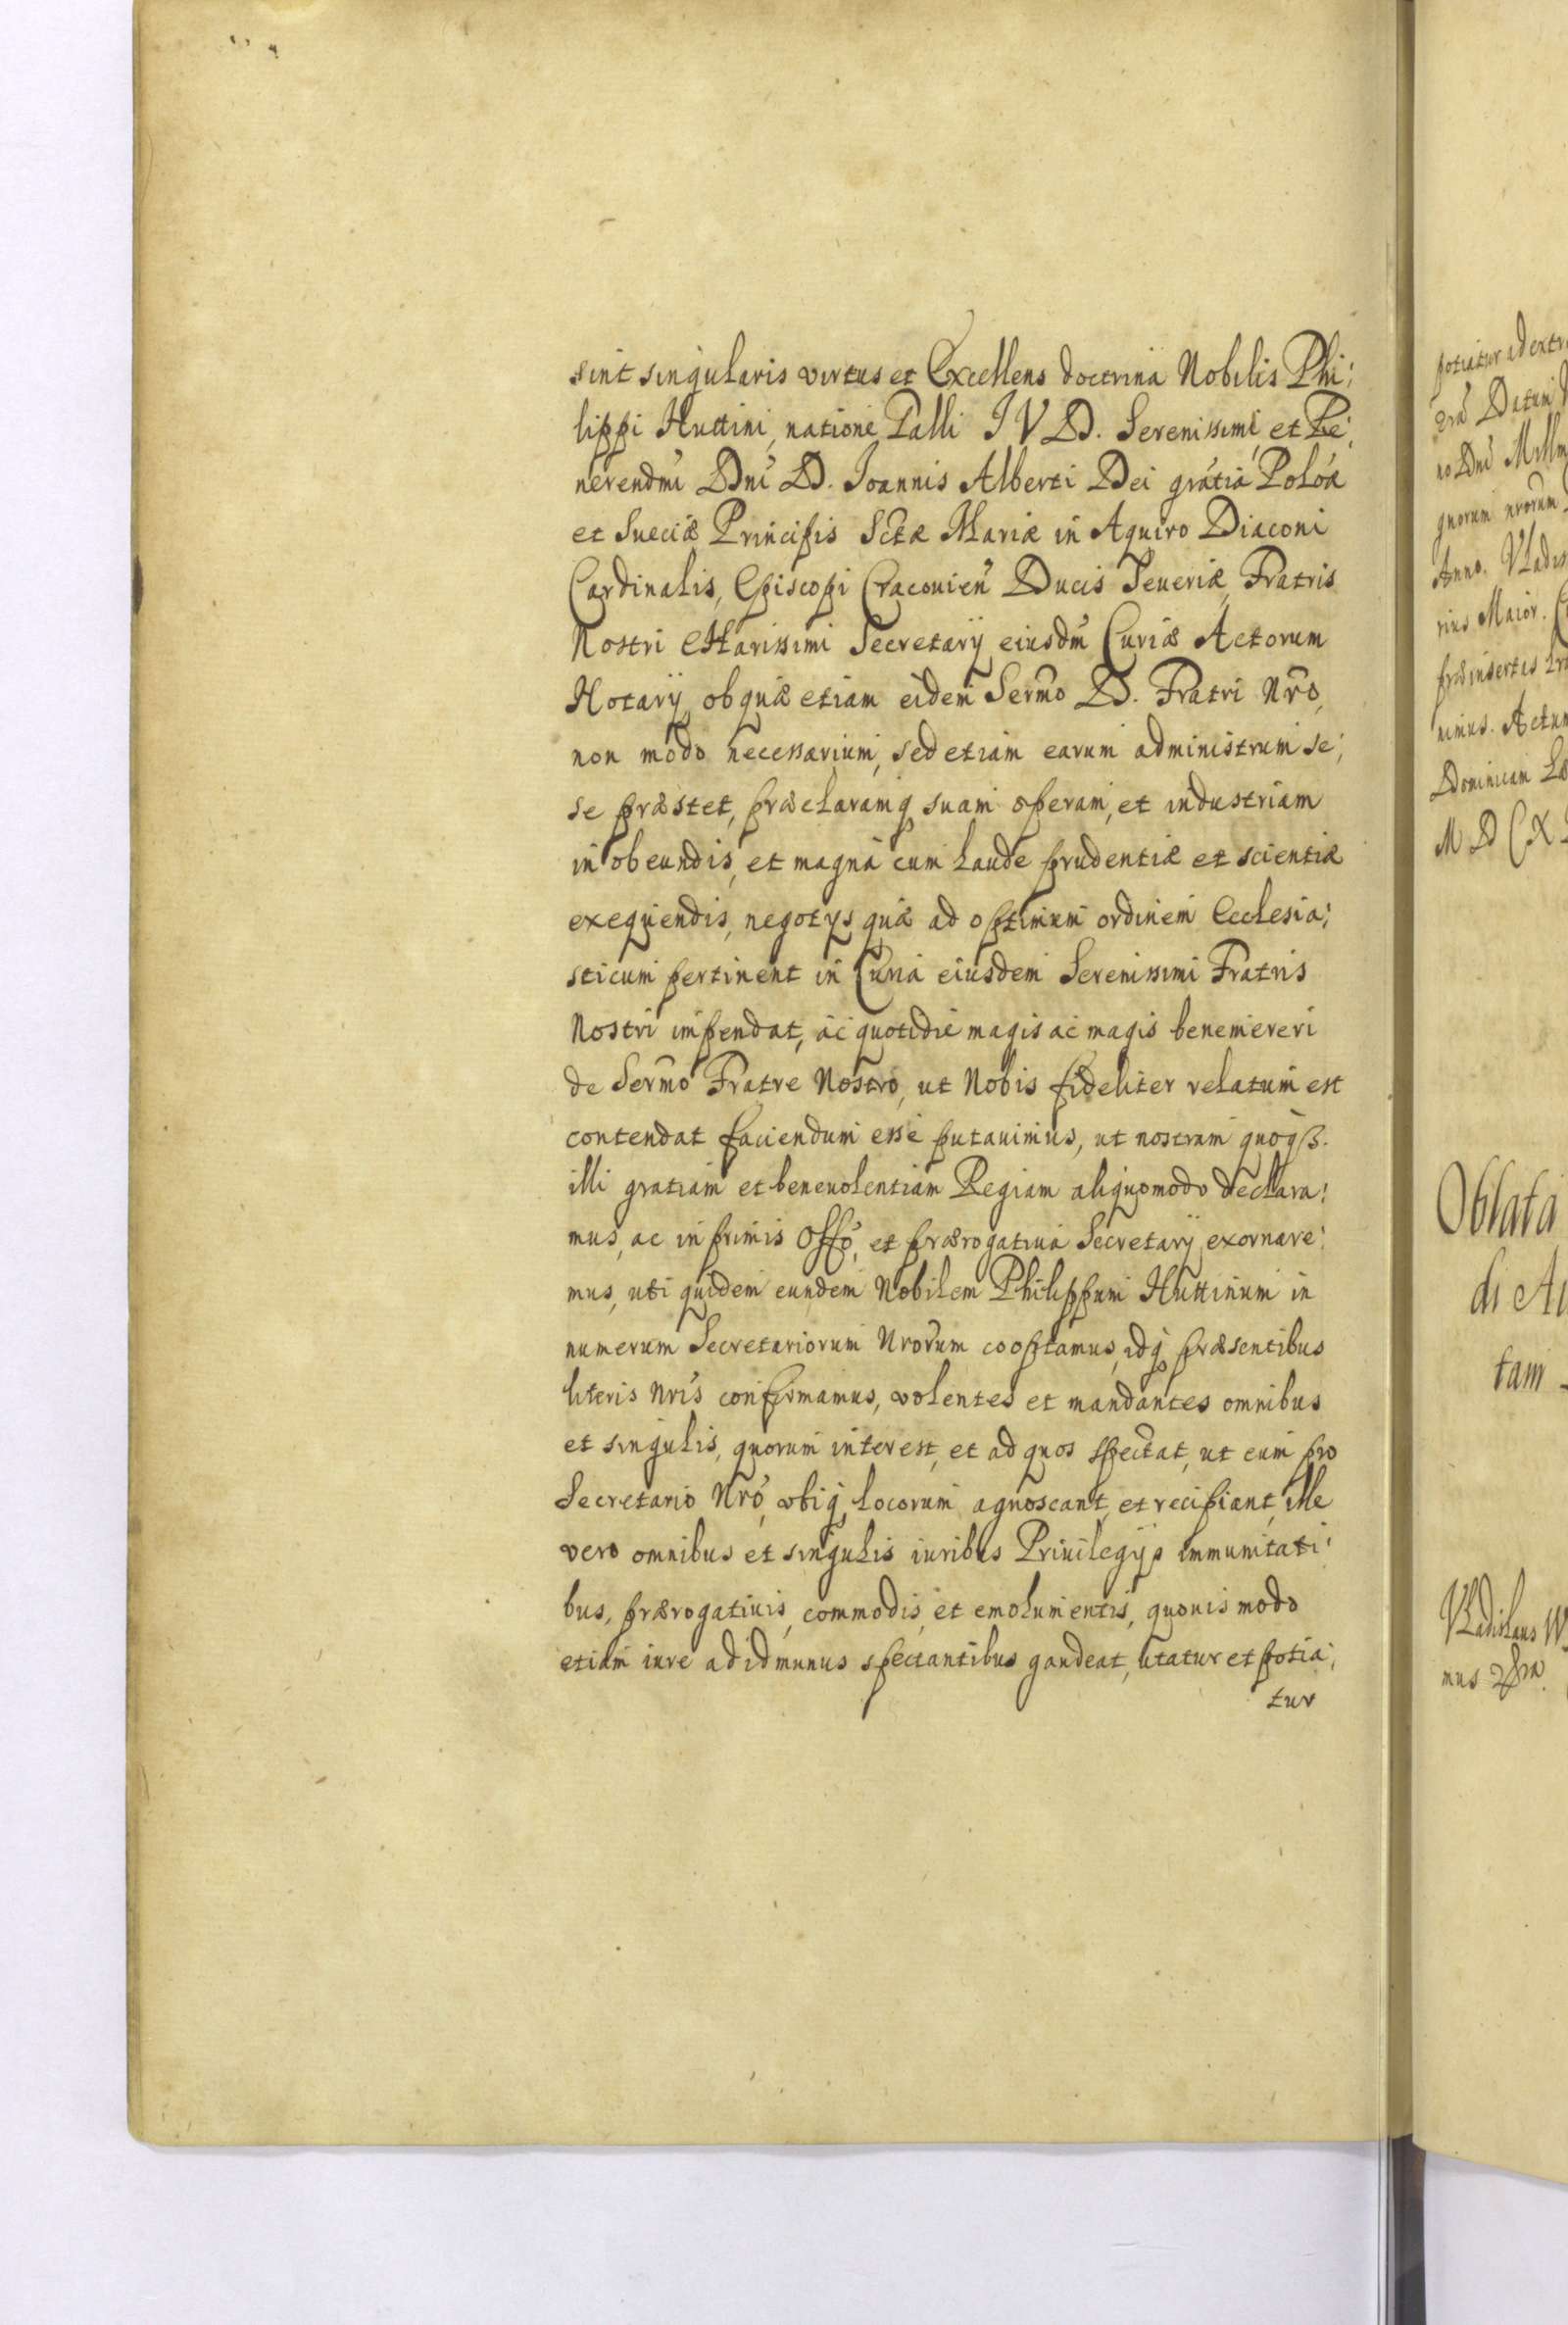 sint singularis virtus et Excellens doctrina Nobilis Phi:
lippi Huttini, natione Galli I V D. Serenissimi, et Re:
verendmi Dni D. Joannis Alberti Dei gratia Poloa
et Sueciæ Principis Sctæ Mariæ in Aquiro Diaconi
Cardinalis, Episcopi Cracovien Ducis Severiæ, Fratris
Nostri Charissimi Secretarij eiusdm Curiæ Actorum
Notarij, ob quæ etiam eidem Sermo D. Fratri Nro,
non modo necessarium, sed etiam earum administrum se:
se præstet, præclaramq suam operam, et industriam
in obeundis, et magna cum laude prudentiæ et scientiæ
exequendis, negotys quæ ad optimum ordinem Ecclesia:
sticum pertinent in Curia eiusdem Serenissimi Fratris
Nostri impendat, ac quotidie magis ac magis benemereri
de Sermo Fratre Nostro, ut Nobis fideliter relatum est
contendat faciendum esse putavimus, ut nostram quoqß.
illi gratiam et benevolentiam Regiam aliquomodo declara:
mus, ac in primis Offo, et prærogativa Secretarij exornare:
mus, uti quidem eundem Nobilem Philippum Huttinum in
numerum Secretariorum Nrorum cooptamus, idq præsentibus
literis Nris confirmamus, volentes et mandantes omnibus
et singulis, quorum interest, et ad quos spectat, ut eum pro
Secretario Nro, ubiq locorum agnoscant, et recipiant, ille
vero omnibus et singulis iuribus Privilegijs immunitati:
bus, prærogativis, commodis, et emolumentis, quovis modo
etiam iure ad id munus spectantibus gaudeat, utatur et potia:
tur
potiatur ad extr
Datum
no Dni Millm
gnorum nrorum
Anno. Vladis
rius Maior.
præinsertis
nimus. Actum
Dominicam
M D C X
Oblata
di
tam
Vladislaus
mus